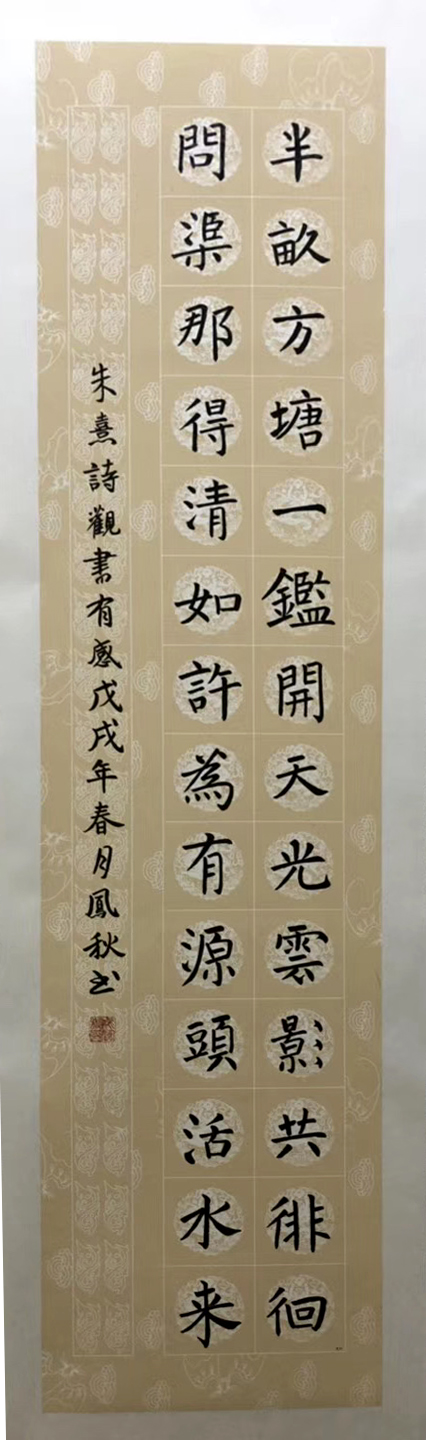 半畝方塘一鑑開天光雲影共徘徊
問渠那得清如許為有源頭活水来
朱熹詩觀書有感戊戌年春月鳳秋书